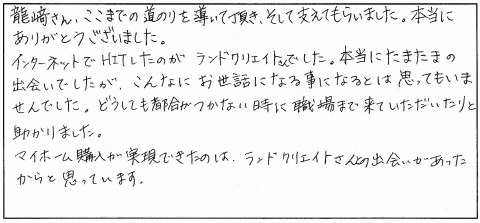 龍﨑さん、ここまでの道のりを導いて頂き、そして支えてもらいました。本当に
ありがとうございました。
インターネットでHITしたのがランドクリエイトさんでした。本当にたまたまの
出会いでしたが、こんなにお世話になる事になるとは思ってもいま
せんでした。どうしても都合がつかない時に職場まで来ていただいたりと
助かりました。
マイホーム購入が実現できたのは、ランドクリエイトさんとの出会いがあった
からと思っています。